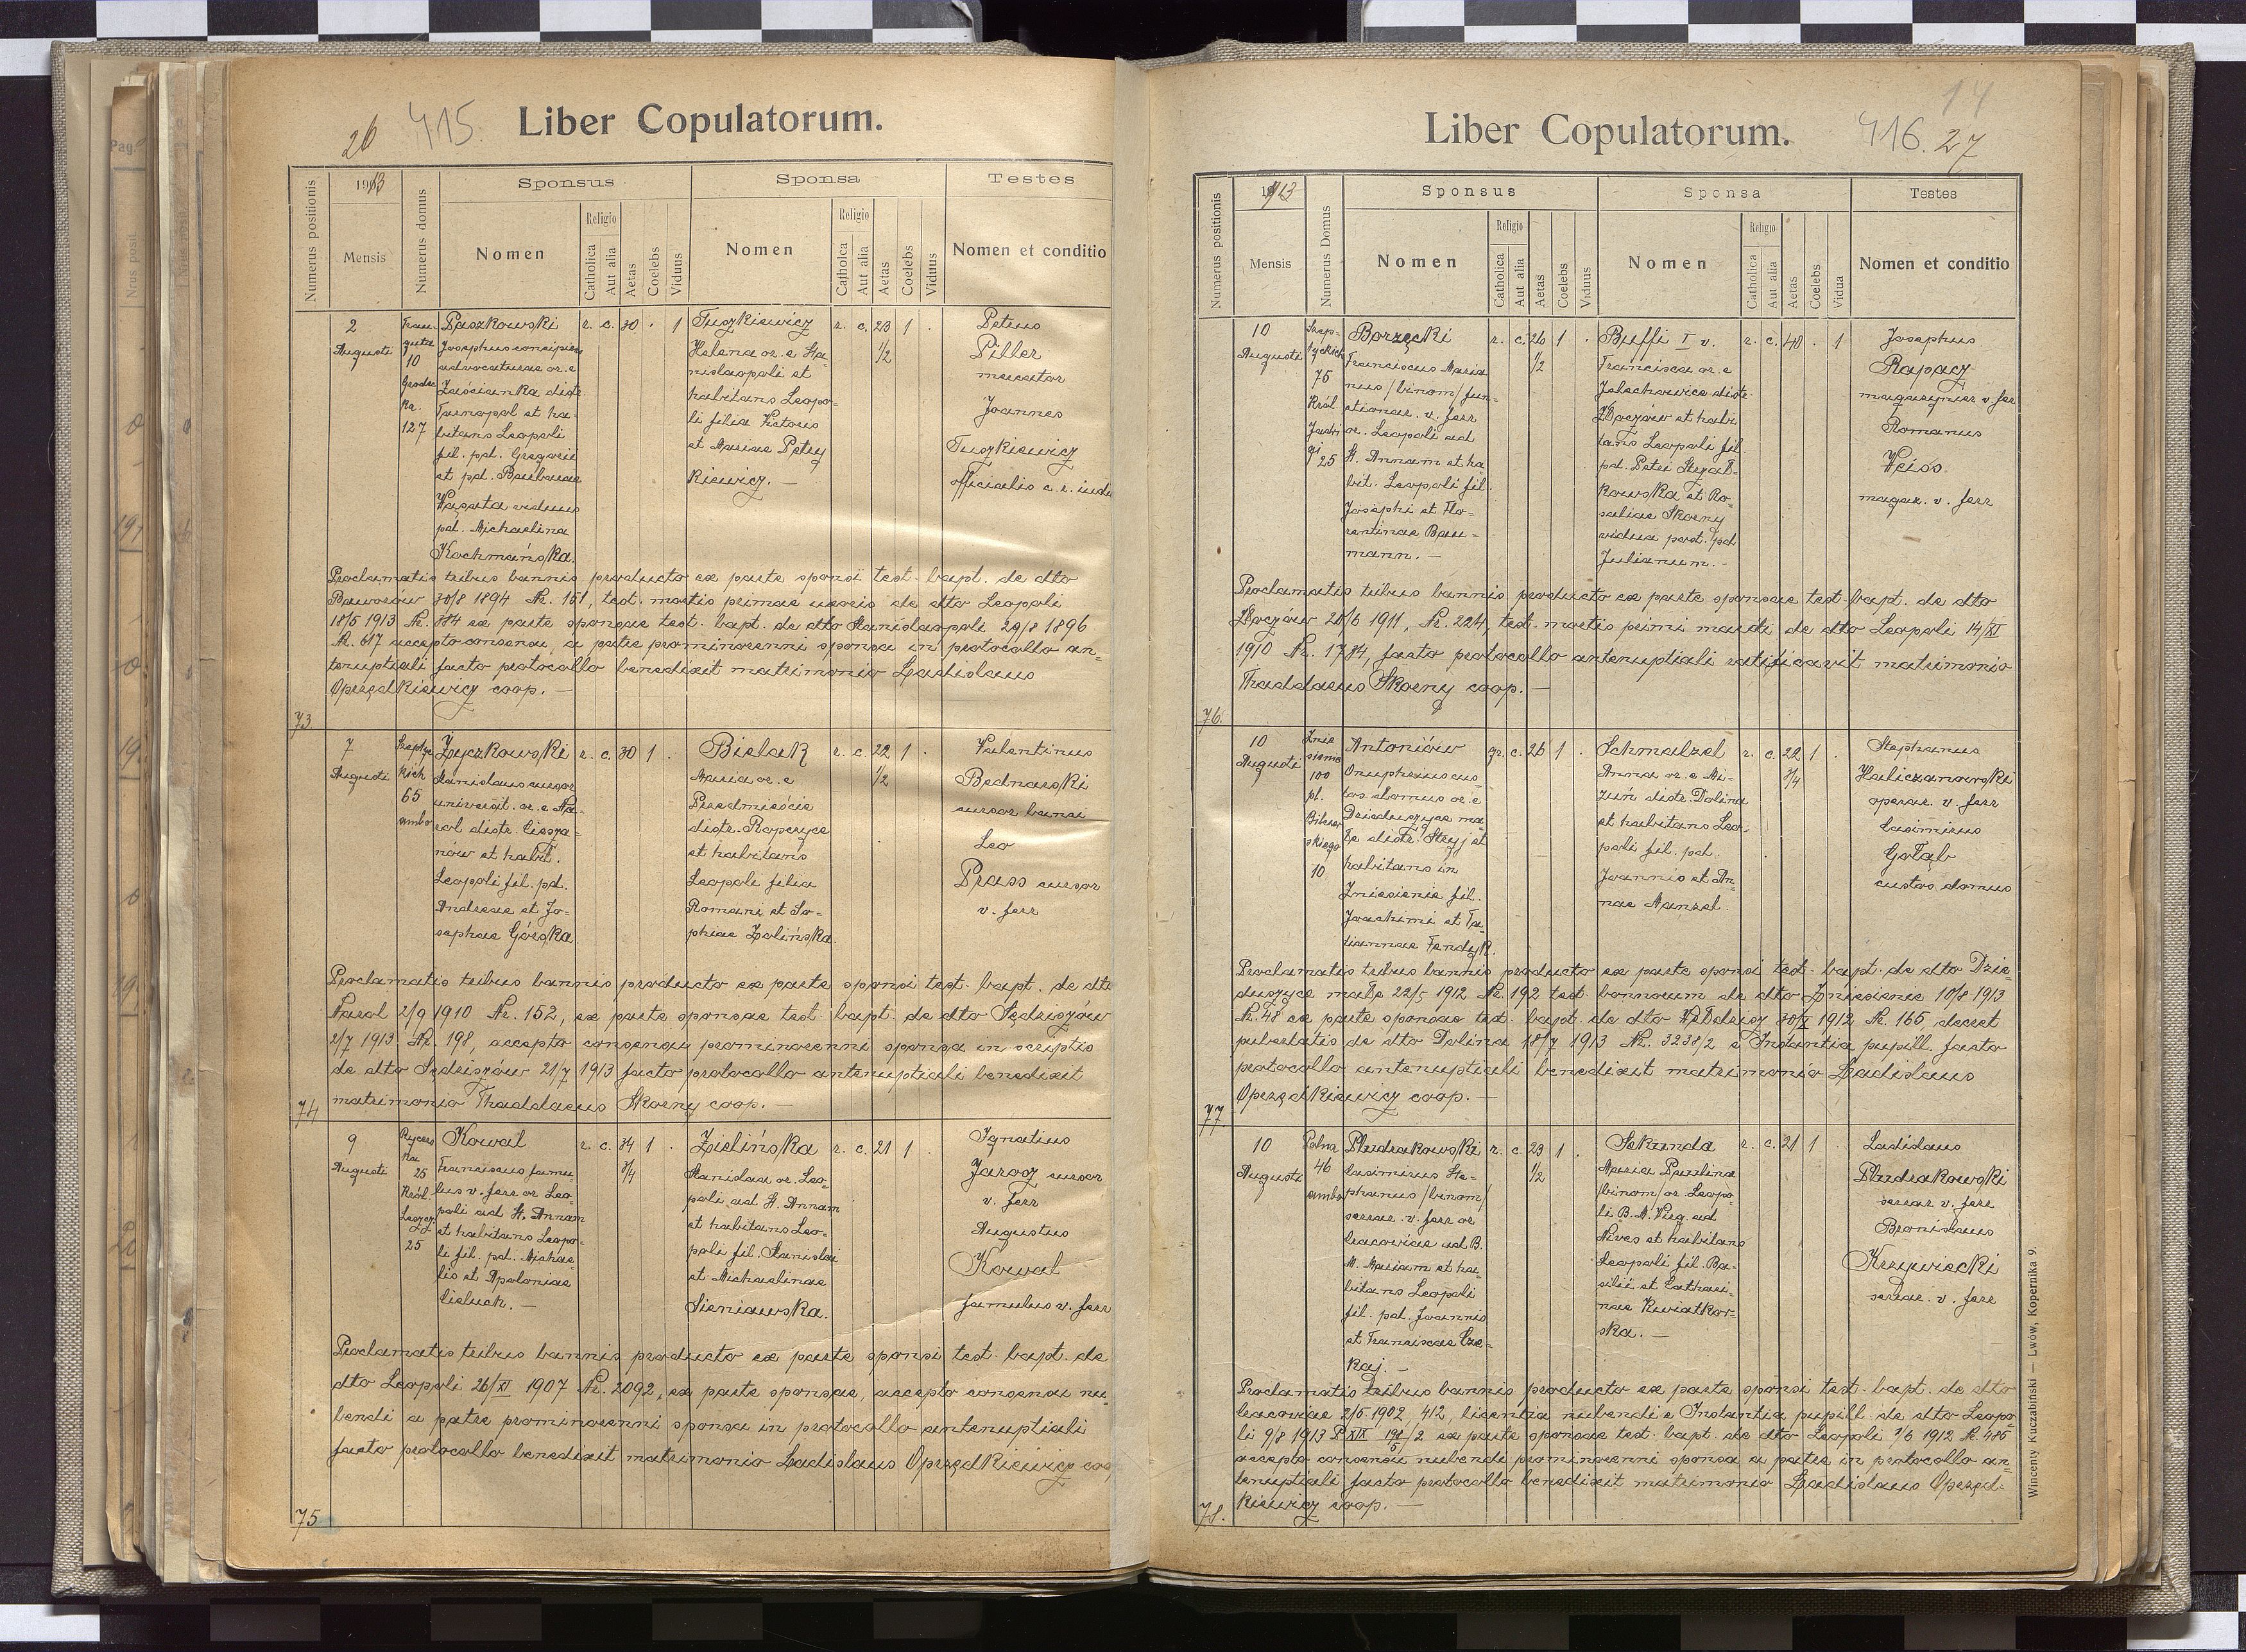 26 415. Liber Copulatorum.
Numerus positionis
1913
Mensis
Numerus domus
Sponsus
Nomen
Religio
Catholica
Aut alia
Aetas
Coelebs
Viduus
Sponsa
Nomen
Religio
Catholca
Aut alia
Aetas
Coelebs
Viduus
Testes
Nomen et conditio
73.
2
Augusti
10
127
Paszkowski
Josephus
advocaturae or. e
Zaścianka distr.
Tarnopol et ha-
bitans Leopoli
fil. pd. Gregorii
et pd. Barbarae
Wasata viduus
pd. Michaelina
Kochmańska
r. c. 30 . 1
Tuszkiewicz
Helena or. e Sta-
nislaopoli et
habitans Leopo-
li filia Victoris
et Mariae Petry
kiewicz. —
r. c. 23 1 .
1/2
Petrus
Piller
mercator
Joannes
Tuszkiewicz
officialis c. r.
Proclamatis tribus bannis producto ex parte sponsi test. bapt. de dto
Baworów 30/8 1894 Nr. 151, test. mortis primae uxoris de dto Leopoli
18/5 1913 Nr. ex parte sponsae test. bapt. de dto Stanislaopoli 29/8 1896
Nr. 617 accepto consensu a patre prominorenni sponsa in protocollo an-
tenuptiali facto protocollo benedixit matrimonio Ladislaus
Oprzędkiewicz coop. —
74
7
Augusti
65
ambo
Życzkowski
Stanislaus cursor
universit. or. e Na-
rol distr. Ciesza-
nów et habit.
Leopoli fil. pd.
Andreae et Jo-
sephae Górska
r. c. 30 1 .
Bielak
Maria or. e
Przedmieście
distr. Ropczyce
et habitans
Leopoli filia
Romani et So-
phiae Zolińska
r. c 22 1 .
1/2
Valentinus
Bednarski
cursor
Leo
Prass cursor
v. ferr
Proclamatis tribus bannis producto ex parte sponsi test. bapt. de dto
Narol 2/9 1910 Nr. 152, ex parte sponsae test. bapt. de dto Sędziszów
2/7 1913 Nr. 198, accepto consensu prominorenni sponsa in scriptis
de dto Sędziszów 21/7 1913 facto protocollo antenuptiali benedixit
matrimonio Thaddaeus Skorny coop. —
75
9
Augusti
Rycers
ka
25
Król.
25
Kowal
Franciscus famu-
lus v. ferr or Leo-
poli ad St. Annam
et habitans Leopo-
li fil. pd. Michae-
lis et Apoloniae
Cieluch. —
r. c. 34 1 .
3/4
Zielińska
Stanislaa or. Leo-
poli ad St. Annam
et habitans Leo-
poli fil. Stanislai
et Michaelinae
Sieniawska.
r. c. 21 1 .
Ignatius
Jarosz cursor
v. ferr
Augustus
Kowal
famulus v. ferr
Proclamatis tribus bannis producto ex parte sponsi test. bapt. de
dto Leopoli 26/XI 1907 Nr. 2092, ex parte sponsae, accepto consensu nu-
bendi a patre prominorenni sponsa in protocollo antenuptiali
facto protocollo benedixit matrimonio Ladislaus Oprzędkiewicz coo
14
Liber Copulatorum. 416. 27
Numerus positionis
1913
Mensis
Numerus Domus
Sponsus
Nomen
Religio
Catholica
Aut alia
Aetas
Coelebs
Viduus
Sponsa
Nomen
Religio
Catholica
Aut alia
Aetas
Coelebs
Vidua
Testes
Nomen et conditio
76.
10
Augusti
Szep-
tyckich
75
Król.
Jadwi
gi 25
Borzęcki
Franciscus Maria
nus /binom/ fun-
ctionar. v. ferr
or. Leopoli ad
St. Annam et ha
bit. Leopoli fil.
Josephi et Flo-
rentinae Bau-
mann. —
r. c. 26 1 .
1/2
Buffi I v.
Francisca or. e
Jelechowice distr.
Złoczów et habi
tans Leopoli fil.
pd. Petri
kowska et Ro-
saliae Skorny
vidua post. pd
Julianum. —
r. c. 40 . 1
Josephus
Rapacz
magazynier v. ferr
Romanus
Weiss
magaz. v. ferr
Proclamatis tribus bannis producto ex parte sponsae test. bapt. de dto
Złoczów 21/6 1911, Nr. 224, test. mortis primi mariti de dto Leopoli 14/XI
1910 Nr. 1784, facto protocollo antenuptiali ratificavit matrimonio
Thaddaeus Skorny coop. —
77
10
Augusti
Znie
sienie
100
pl.
Bilczew
skiego
10
Antoniów
Onuphrius cus-
tos domus or. e
Dzieduszyce ma
łe distr. Stryj et
habitans in
Zniesienie fil.
Joachimi et Ta-
tiannae Fendyk.
gr. c. 26 1 .
Schmalzel
Anna or. e Mi-
zuń distr. Dolina
et habitans Leo-
poli fil. pd.
Joannis et An-
nae Manzel.
r. c. 22 1 .
3/4
Stephanus
Haliczanowski
operar. v. ferr
Casimirus
Gołąb
custos domus
Proclamatis tribus bannis producto ex parte sponsi test. bapt. de dto Dzie-
duszyce małe 22/5 1912 Nr. 192 test. bannorum de dto Zniesienie 10/8 1913
Nr. 48 ex parte sponsae test. bapt. de dto Wełdzirz 30/X 1912 Nr. 165, decret
pubertatis de dto Dolina 18/7 1913 Nr. 3238/2 e Instantia pupill. facto
protocollo antenuptiali benedixit matrimonio Ladislaus
Oprzędkiewicz coop. —
78.
10
Augusti
Polna
46
ambo
Pludrakowski
Casimirus Ste-
phanus /binom/
serrar. v. ferr or
Cracoviae ad B.
M. Mariam et ha-
bitans Leopoli
fil. pd. Joannis
et Franciscae Cze-
kaj. —
r. c. 23 1 .
1/2
Sekunda
Maria Paulina
/binom/ or. Leopo-
li B. M. Virg. ad
Nives et habitans
Leopoli fil. Ba-
silii et Cathari-
nae Kwiatkow-
ska. —
r. c. 21 1
Ladislaus
Pludrakowski
serrar v. ferr
Bronislaus
Krzywiecki
serrar. v. ferr
Proclamatis tribus bannis producto ex parte sponsi test. bapt. de dto
Cracoviae 2/5 1902, 412, licentia nubendi e Instantia pupill. de dto Leopo-
li 9/8 1913 P XIX 198/5/2 ex parte sponsae test. bapt. de dto Leopoli 7/6 1912 Nr. 485
accepto consensu nubendi prominorenni sponsa a patre in protocollo an-
tenuptiali facto protocollo benedixit matrimonio Ladislaus Oprzęd-
kiewicz coop. —
Wincenty Kuczabiński — Lwów, Kopernika 9.
Pag.
Nrus posit.